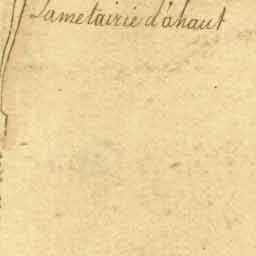 Lametairie d'ahaut